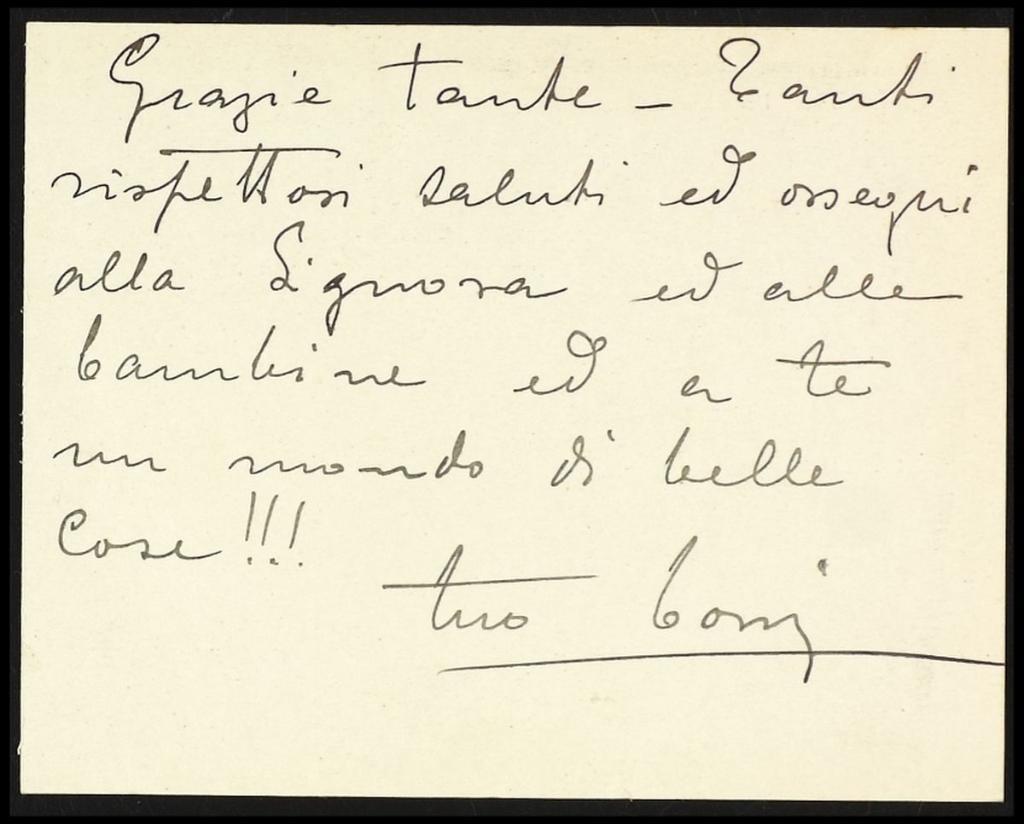 Grazie tante - Tanti
rispettosi saluti ed ossequi
alla Signora ed alle
bambine ed a te
un mondo di belle
cose!!!
tuo